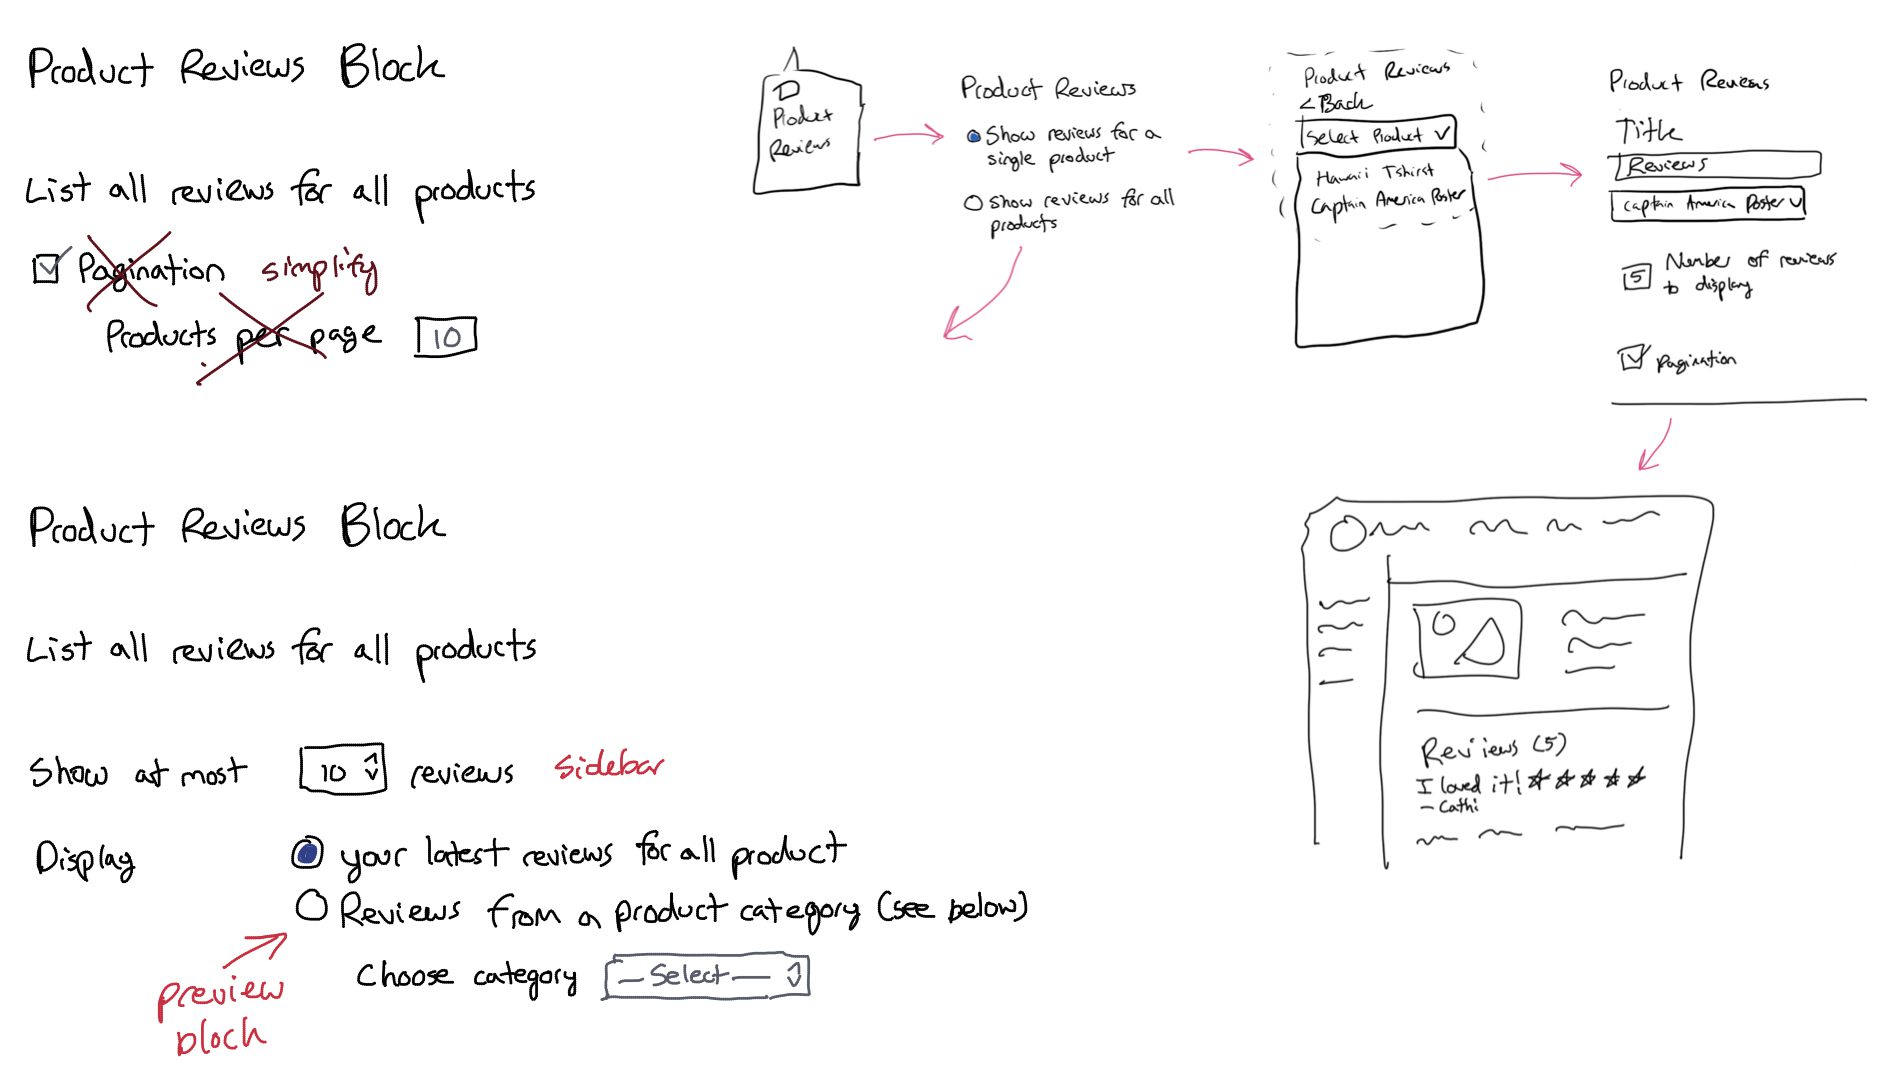 Product Reviews Block
List all reviews for all products
Pagination simplify
Products per page 10
Product
Reviews
Product Reviews
Show reviews for a
single product
Show reviews for all
products
Product Reviews
< Back
Select Product
Hawaii Tshirst
Captain America Poster
Product Reviews
Title
Reviews
Captain America Poster
5 Number of reviews
to display
pagination
Reviews (5)
I loved it!
- Cathi
Product Reviews Block
List all reviews for all products
Show at most 10 reviews sidebar
Display your latest reviews for all product
Reviews from a product category (see below)
Choose category — Select —
preview
block